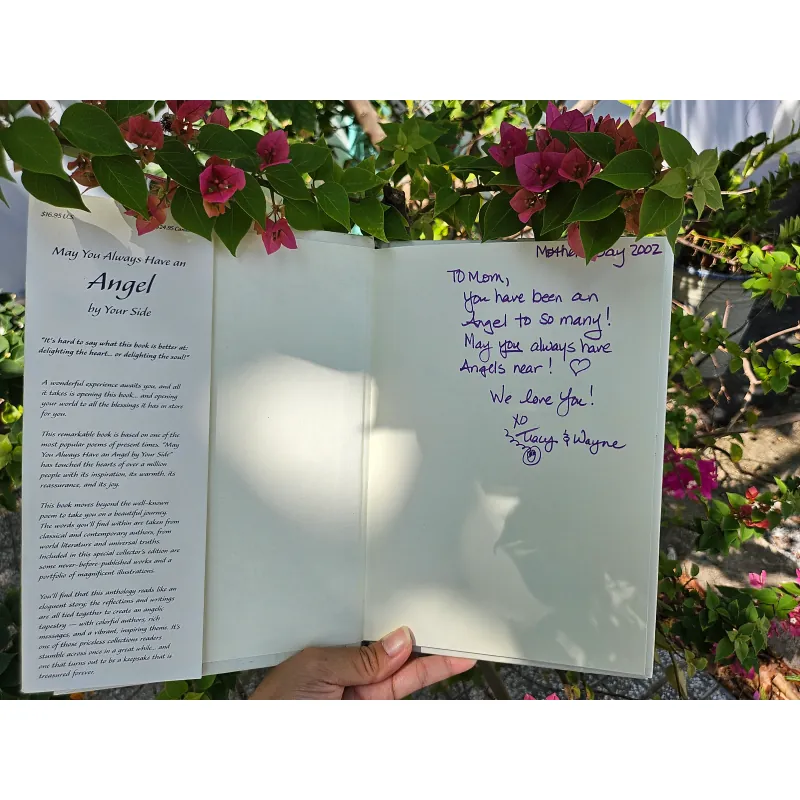 $16.95 U.S.
$24.95 Can
May You Always Have an
Angel
by Your Side
"It's hard to say what this book is better at:
delighting the heart... or delighting the soul!"
A wonderful experience awaits you, and all
it takes is opening this book... and opening
your world to all the blessings it has in store
for you.
This remarkable book is based on one of the
most popular poems of present times. "May
You Always Have an Angel by Your Side"
has touched the hearts of over a million
people with its inspiration, its warmth, its
reassurance, and its joy.
This book moves beyond the well-known
poem to take you on a beautiful journey.
The words you'll find within are taken from
classical and contemporary authors, from
world literature and universal truths.
Included in this special collector's edition are
some never-before-published works and a
portfolio of magnificent illustrations.
You'll find that this anthology reads like an
eloquent story; the reflections and writings
are all tied together to create an angelic
tapestry — with colorful authors, rich
messages, and a vibrant, inspiring theme. It's
one of those priceless collections readers
stumble across once in a great while... and
one that turns out to be a keepsake that is
treasured forever.
Day 2002
To Mom,
You have been an
Angel to so many!
May you always have
Angels near! ♡
We love You!
XO
Tracy & Wayne